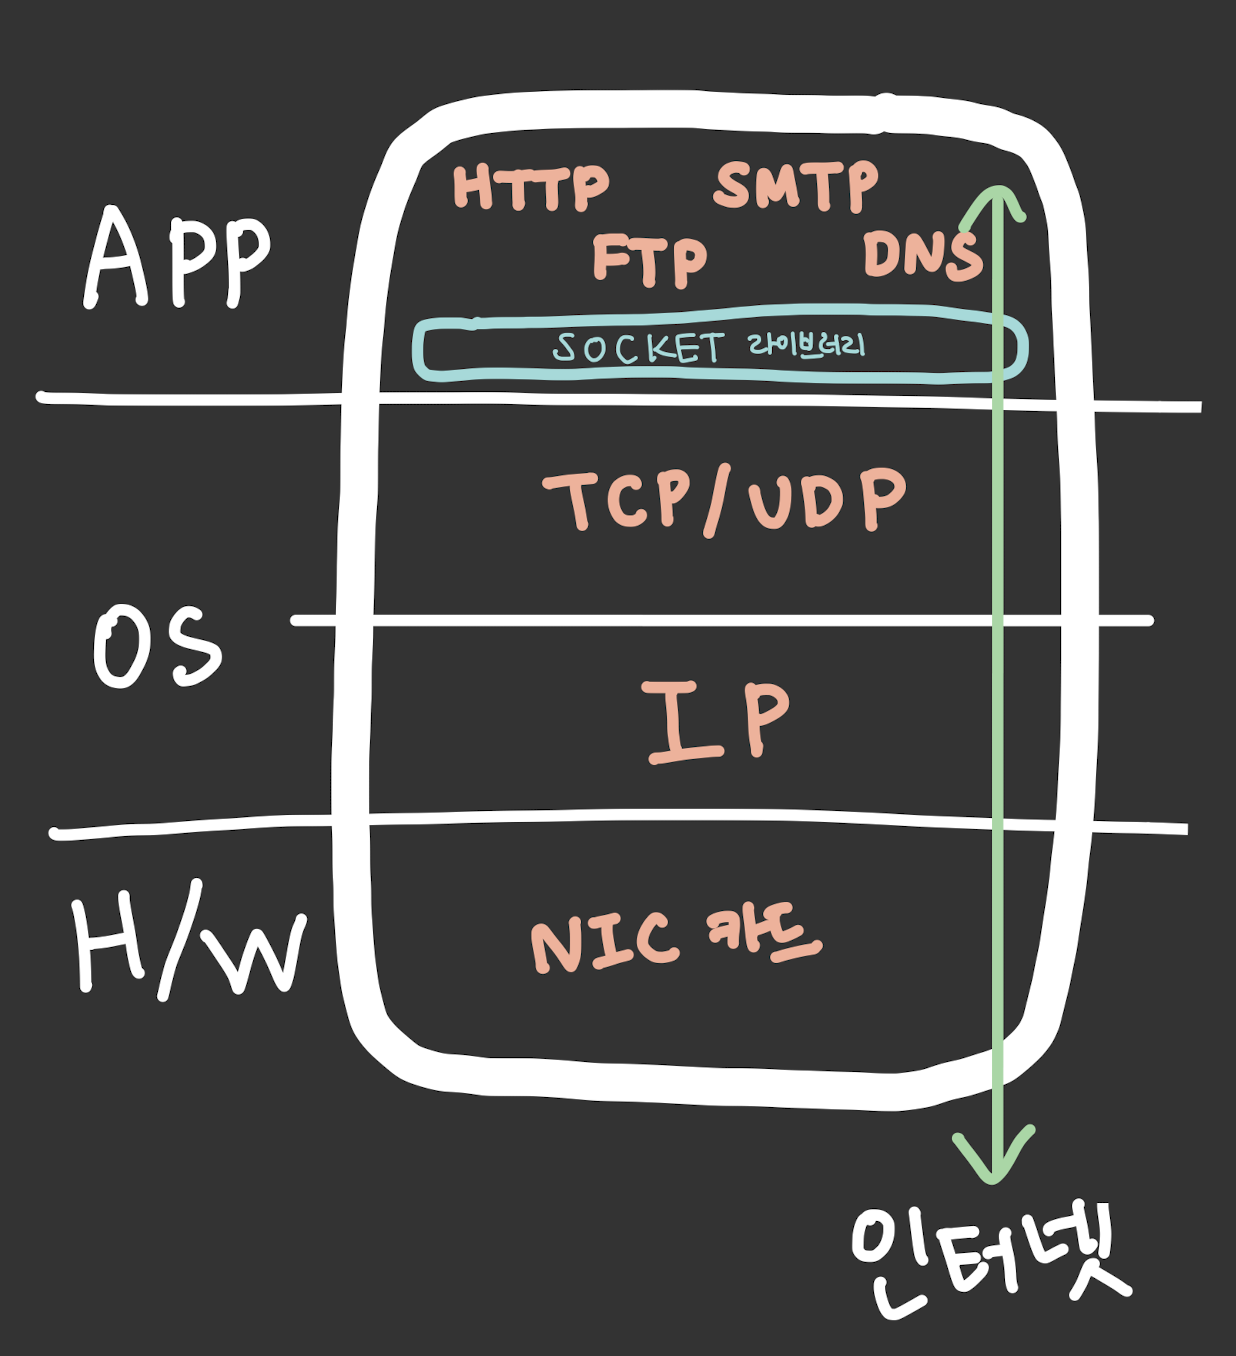 HTTP SMTP
APP
FTP DNS
SOCKET 라이브러리
TCP/UDP
OS
IP
H/W
NIC 카드
인터넷